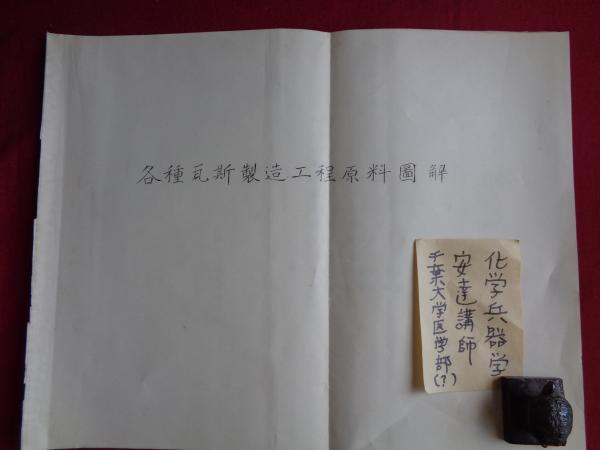 各種瓦斯製造工程原料圖解
化学兵器学
安達講師
千葉大学医学部(?)